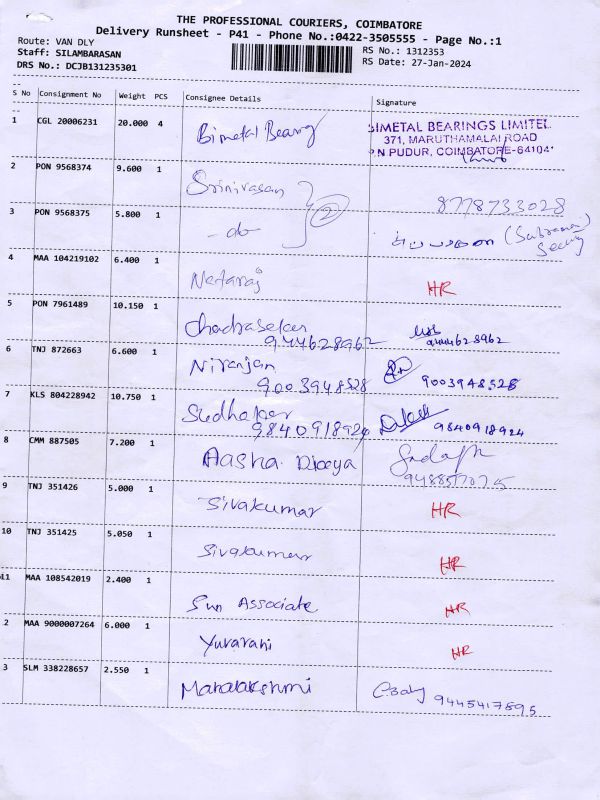 THE PROFESSIONAL COURIERS, COIMBATORE
Delivery Runsheet - P41 - Phone No.:0422-3505555 - Page No.:1
Route: VAN DLY RS No.: 1312353
Staff: SILAMBARASAN RS Date: 27-Jan-2024
DRS No.: DCJB131235301
S No Consignment No Weight PCS Consignee Details Signature
1 CGL 20006231 20.000 4 Bimetal Bearing
BIMETAL BEARINGS LIMITED
371, MARUTHAMALAI ROAD
P.N PUDUR, COIMBATORE-641041
2 PON 9568374 9.600 1 Srinivasan 2 8778733028
3 PON 9568375 5.800 1 - do -
4 MAA 104219102 6.400 1 Nataraj HR
5 PON 7961489 10.150 1 Chadrasekar
9444628962 9444628962
6 TNJ 872663 6.600 1 Niranjan
9003948528 9003948528
7 KLS 804228942 10.750 1 Sudhaker
9840918924 9840918924
8 CMM 887505 7.200 1 Aasha
9 TNJ 351426 5.000 1 Sivakumar HR
10 TNJ 351425 5.050 1 Sivakumar HR
11 MAA 108542019 2.400 1 Sun Associate HR
2 MAA 9000007264 6.000 1 Yuvarani HR
3 SLM 338228657 2.550 1 Mahalakshmi 9445417595